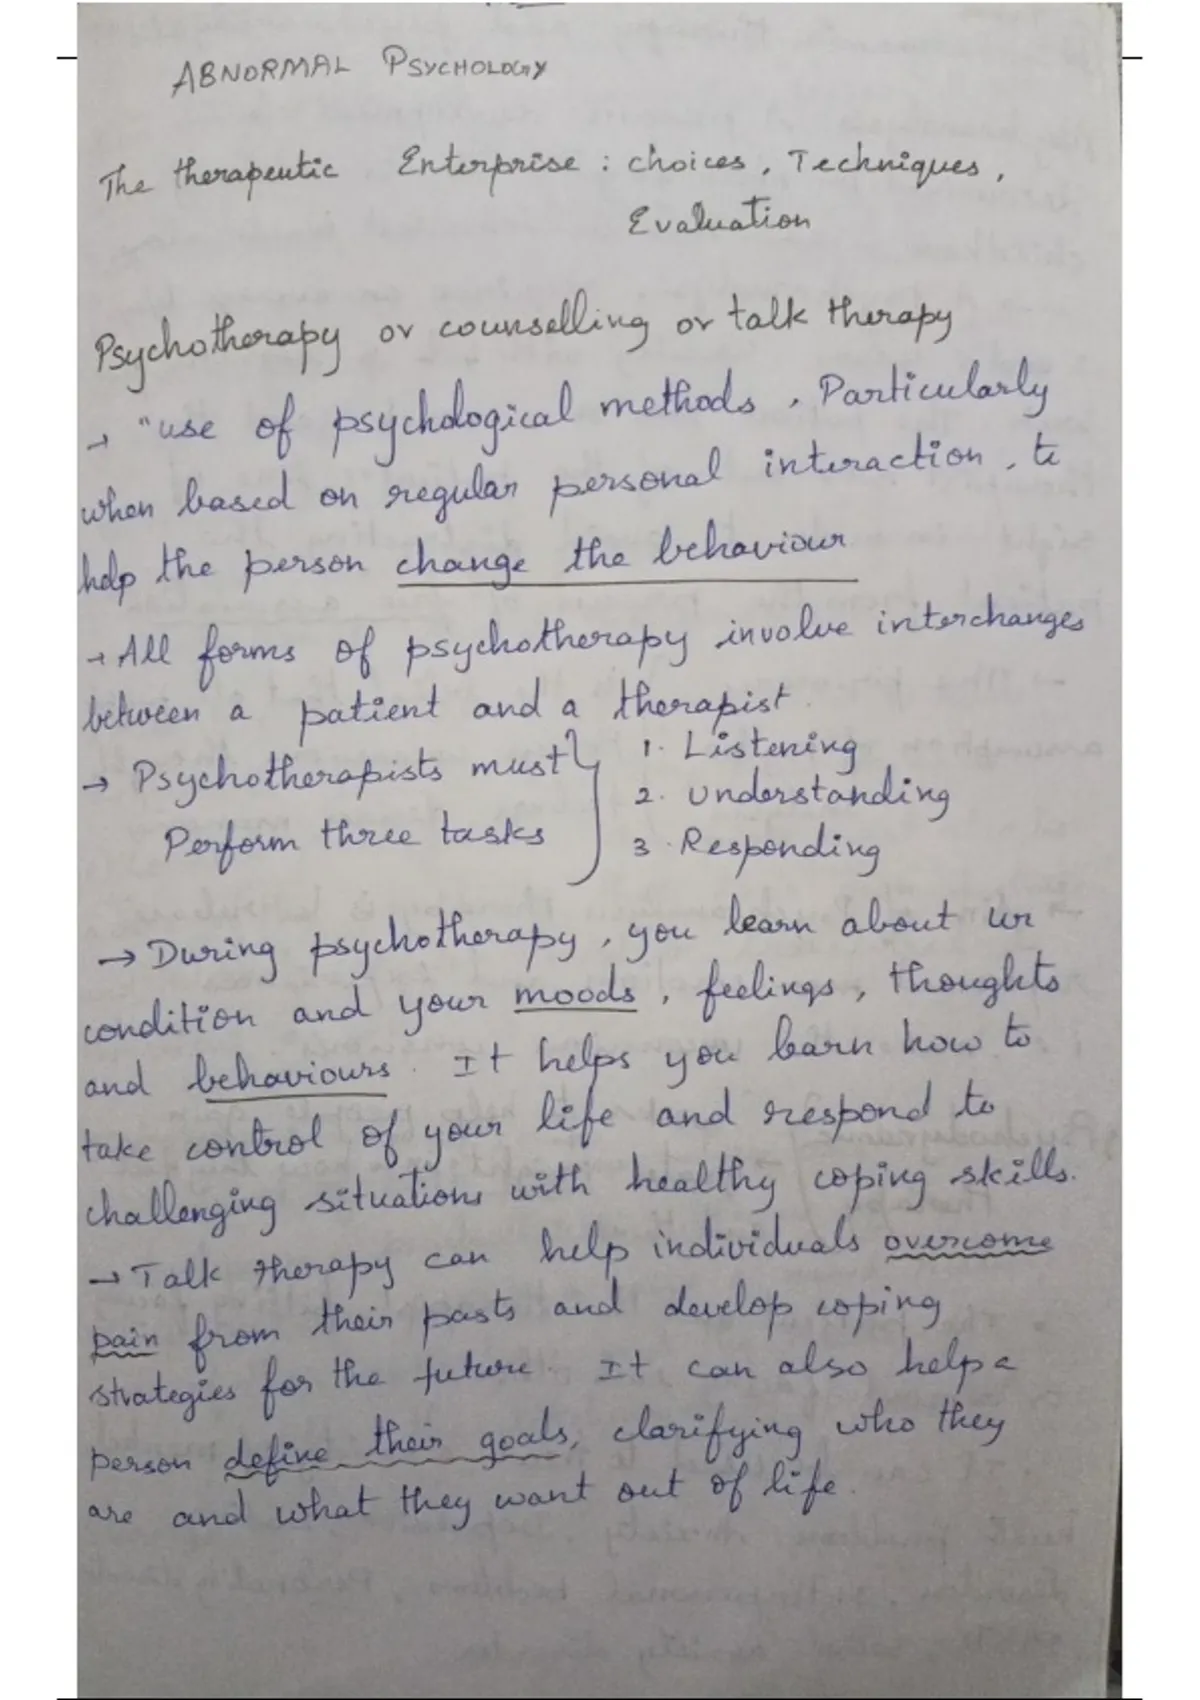 ABNORMAL PSYCHOLOGY
The therapeutic Enterprise : choices, Techniques,
Evaluation
Psychotherapy or counselling or talk therapy
→ "use of psychological methods, Particularly
when based on regular personal interaction, to
help the person change the behaviour
→ All forms of psychotherapy involve interchanges
between a patient and a therapist.
→ Psychotherapists must } 1. Listening
2. Understanding
Perform three tasks
3. Responding
→ During psychotherapy, you learn about ur
condition and your moods, feelings, thoughts
and behaviours. It helps you learn how to
take control of your life and respond to
challenging situations with healthy coping skills.
→ Talk therapy can help individuals overcome
pain from their pasts and develop coping
strategies for the future. It can also help a
person define their goals, clarifying who they
are and what they want out of life.